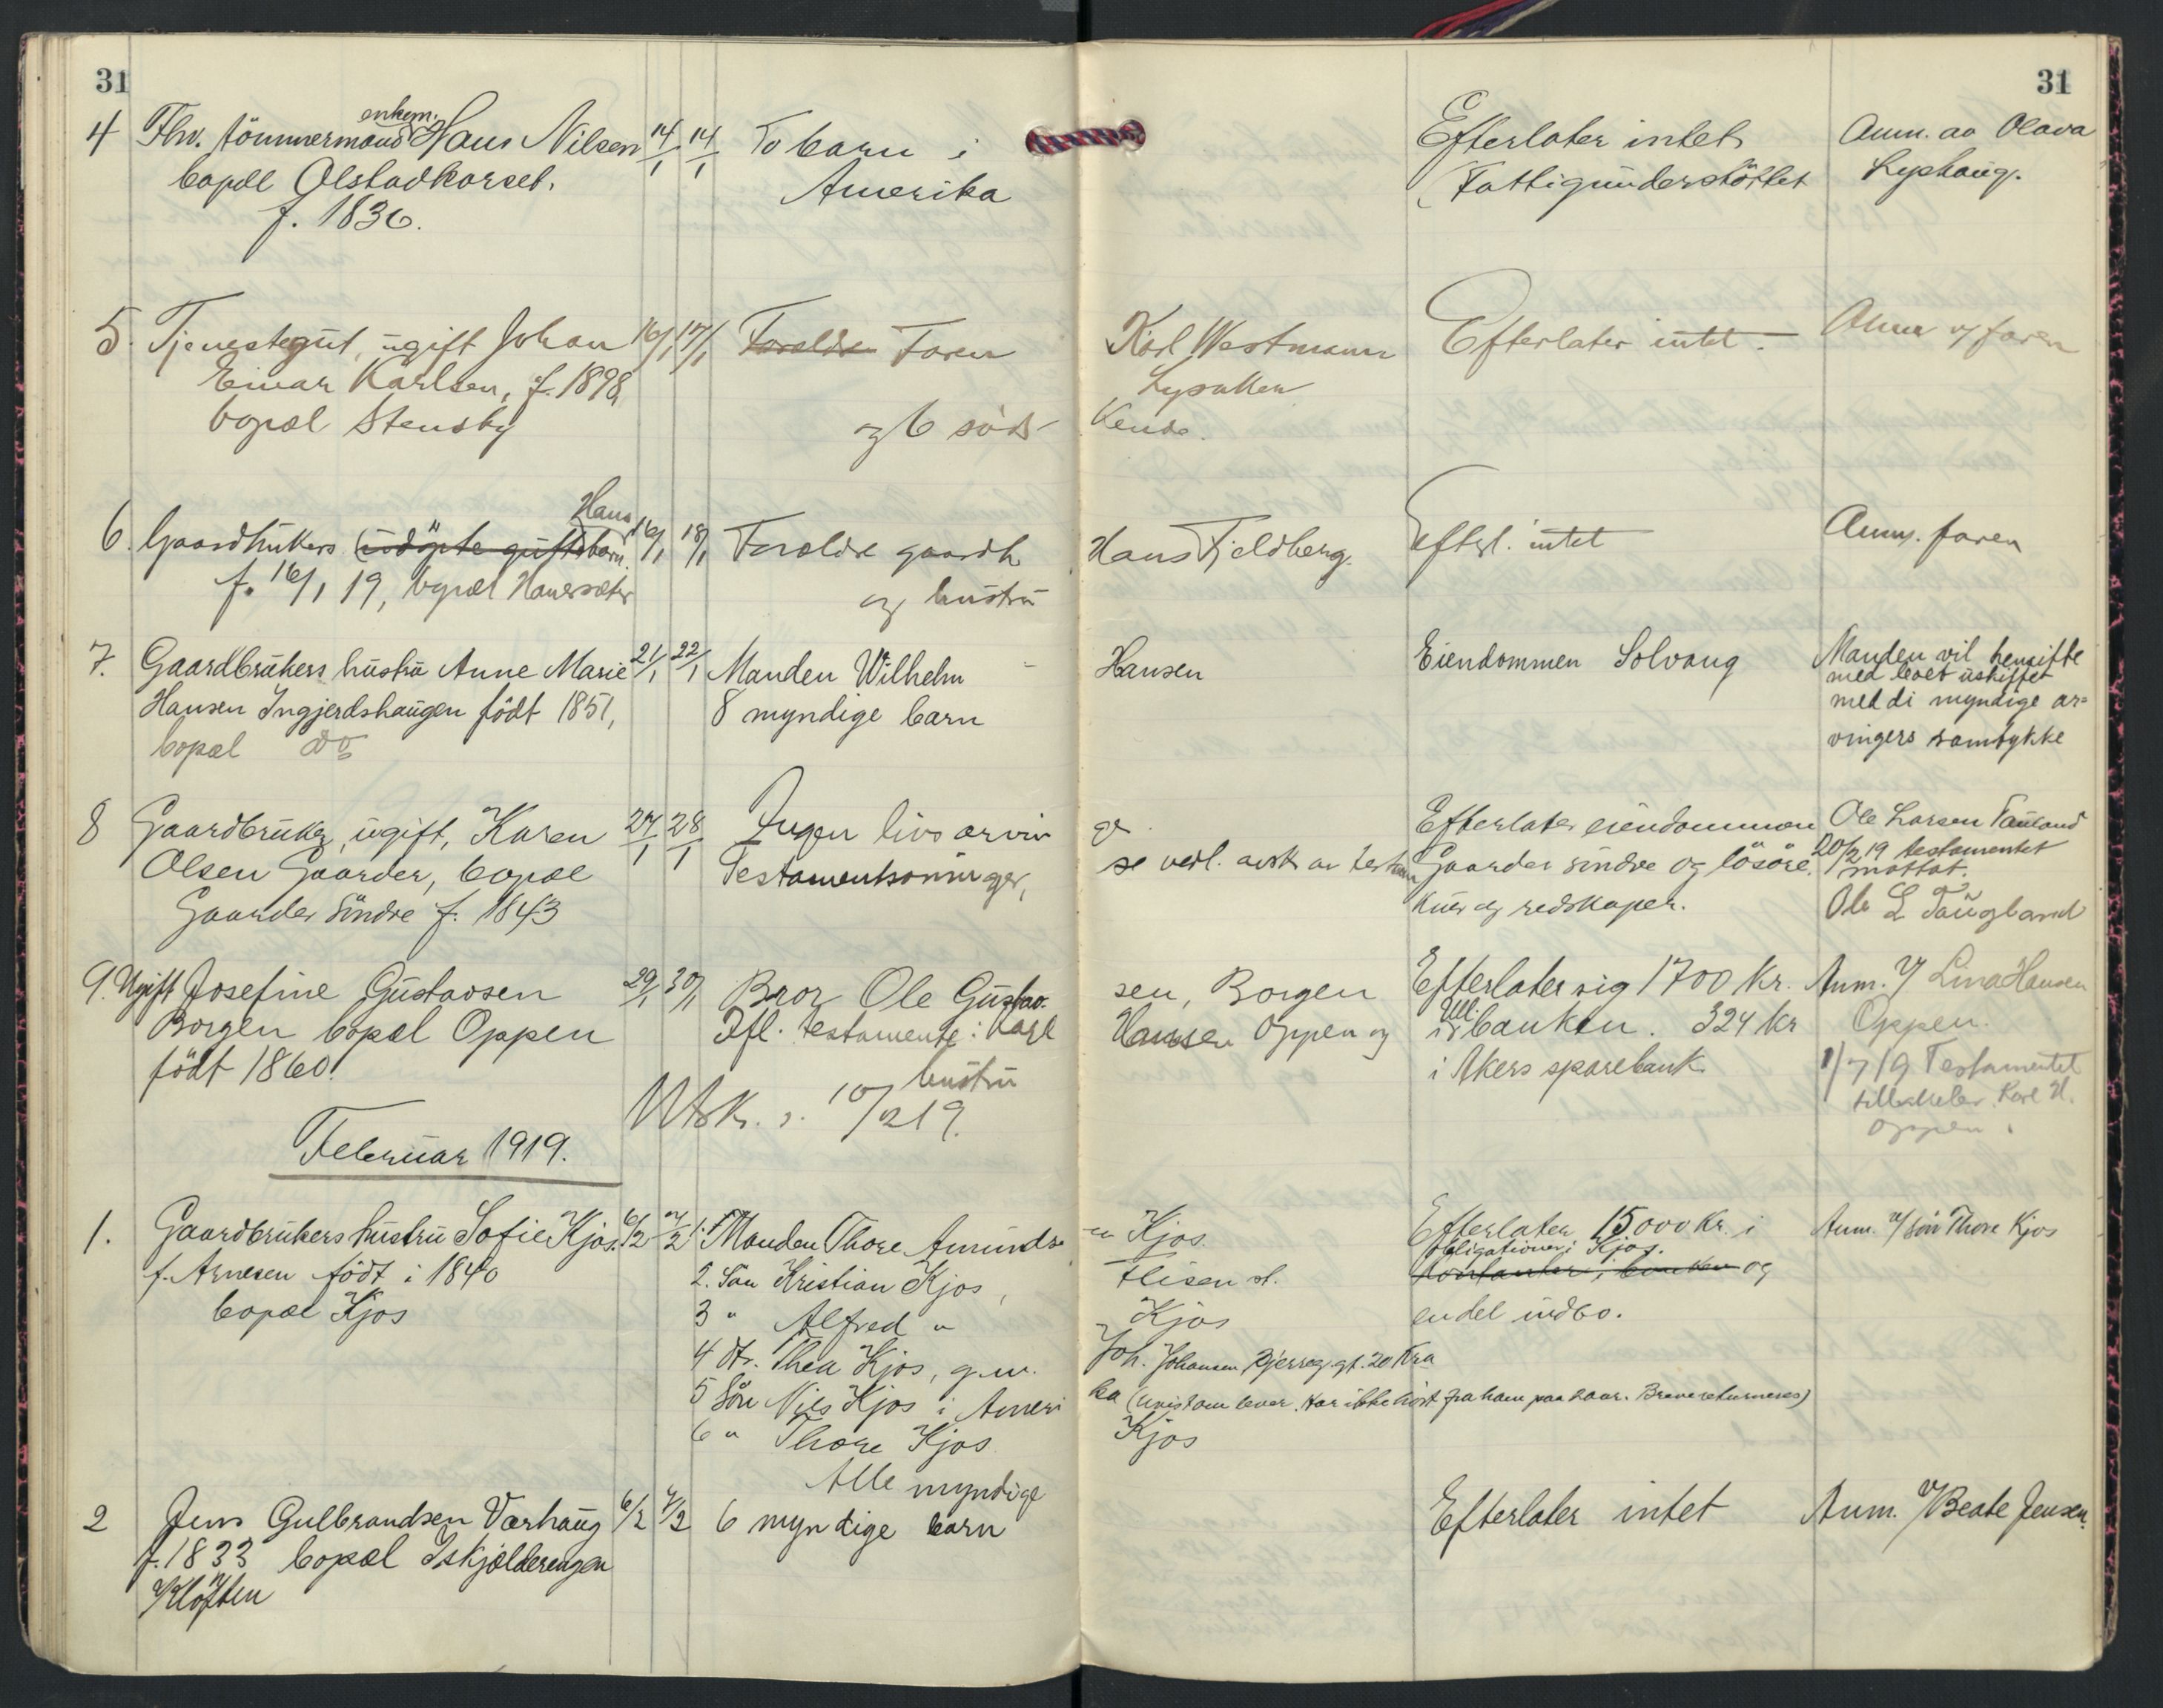 31
31
4 Fhv. tömmermand enkem. Hans Nilsen 14/1 14/1 To barn i Efterlater intet Anm. av Olava
bopæl Olstadkorset. Amerika (Fattigunderstöttet Lyshaug.
f. 1836.
5. Tjenestegut, ugift Johan 16/1 17/1 Forældre Faren Karl Westmann Efterlater intet. Anm v/ faren
Einar Karlsen, f. 1898,
bopæl Stensby og 6 söds- kende.
6. Gaardbrukers (udöpte guttebarn. Hans 16/1 18/1 Forældre gaardb. Hans Fjeldberg. Efterl. intet Anm. faren
f. 16/1 19, bopæl og hustru
7. Gaardbrukers hustru Anne Marie 21/1 22/1 Manden Wilhelm Hansen Eiendommen Solvang Manden vil hensitte
med boet uskiftet
Hansen Ingjerdshaugen födt 1851, 8 myndige barn med di myndige ar-
bopæl do vingers samtykke
8 Gaardbruker, ugift, Karen 27/1 28/1 Ingen livsarvin ger. Efterlater eiendommen Ole Larsen Taugland
Olsen Gaarder, bopæl Testamentsarvinger, se vedl. avsk. av testam Gaarder söndre og lösöre, 20/2 19 testamentet
mottat.
Gaarder Söndre f. 1843 kuer og redskaper. Ole L Taugland
9. Ugift Josefine Gustavsen 29/1 30/1 Bror Ole Gustav- sen, Borgen Efterlater sig 1700 kr. Anm. v/ Lina Hansen
Borgen bopæl Oppen Ifl. testamente: Karl Hansen Oppen og i Ull. banken. 324 kr Oppen.
födt 1860. hustru i Akers sparebank. 1/7 19 Testamentet
Utsk. s. 10/2 19. Karl H.
Oppen.
Februar 1919.
1. Gaardbrukers hustru Sofie Kjos. 6/2 7/2 1. Manden Thore Amunds- en Kjos. Efterlater 15000 kr. i Anm. v/ sön Thore Kjos
f. Arnesen födt i 1840 2. Sön Kristian Kjos, Flisen st. obligationer i Kjos. kontanter i banken og
bopæl Kjos 3 " Alfred " Kjos en del indbo.
4 Dtr. Thea Kjos, g.m. Joh. Johansen, Bjerreg. gt. 20 Kra
5 Sön Nils Kjos i Ameri ka (uvist om lever. Har ikke hört fra ham paa 2 aar. Breve returneres)
6 " Thore Kjos Kjos
Alle myndige
2 Jens Gulbrandsen Varhaug 6/2 7/2 6 myndige barn Efterlater intet Anm. v/ Beate Jensen.
f. 1833 bopæl Iskjælderengen
v/ Klöften